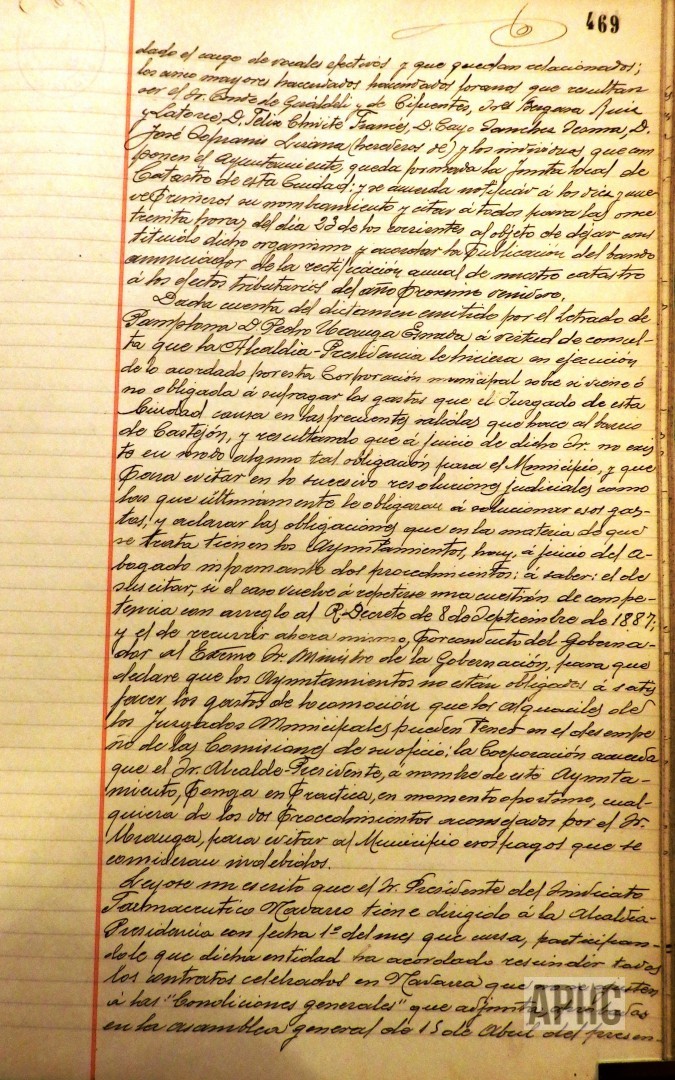 469
dado el cargo de vocales efectivos y que quedan relacionados;
los cinco mayores hacendados hacendados foranos que resultan
ser el Sr. Conde de Geraldeli y de Cifuentes, Sres Vergara Ruiz
y Latorre, D. Felix Chivite Francés, D. Cayo Sanchez D.
José Lizana (herederos de) y los individuos, que com
ponen el Ayuntamiento, queda formada la Junta local de
Catastro de esta Ciudad: y se acuerda notificar á los diez y nue
ve primeros su nombramiento y citar á todos para las once
treinta horas, del dia 23 de los corrientes al objeto de dejar cons
tituido dicho organismo y acordar la publicación del bando
anunciador de la rectificación anual de nuestro catastro
á los efectos tributarios del año proximo venidero.
Dada cuenta del dictamen emitido por el letrado de
Pamplona D. Pedro Uranga Esnada á virtud de consul-
ta que la Alcaldia-Presidencia le hiciera en ejecución
de lo acordado por esta Corporación municipal sobre si viene ó
no obligada á sufragar los gastos que el Juzgado de esta
Ciudad causa en las frecuentes salidas que hace al barrio
de Castejón, y resultando que á juicio de dicho Sr. no exis
te en modo alguno tal obligación para el Municipio, y que
para evitar en lo sucesivo resoluciones judiciales como
las que últimamente le obligaron á solucionar esos gas-
tos, y aclarar las obligaciones que en la materia de que
se trata tienen los Ayuntamientos, hay, á juicio del a-
bogado informante dos procedimientos: á saber: el de
suscitar, si el caso vuelve á repetirse una cuestión de compe-
tencia con arreglo al R. Decreto de 8 de Septiembre de 1887;
y el de recurrir ahora mismo, por conducto del Goberna-
dor al Exmo Sr. Ministro de la Gobernación, para que
declare que los Ayuntamientos no están obligados á satis
facer los gastos de locomoción que los alguaciles de
los Juzgados Municipales pueden tener en el desempe
ño de las Comisiones de su oficio: la Corporación acuerda
que el Sr. Alcalde-Presidente, á nombre de este Ayunta-
miento, ponga en práctica, en momento oportuno, cual-
quiera de los dos procedimientos aconsejados por el Sr.
Uranga, para evitar al Municipio esos pagos que se
consideran indebidos.
Leyose un escrito que el Sr. Presidente del Sindicato
Farmaceutico Navarro tiene dirigido á la Alcaldia-
Presidencia con fecha 1º del mes que cursa, participan-
dole que dicha entidad ha acordado rescindir todos
los contratos celebrados en Navarra que
á las "Condiciones generales" que
en la asamblea general de 15 de Abril del presen-
APHC